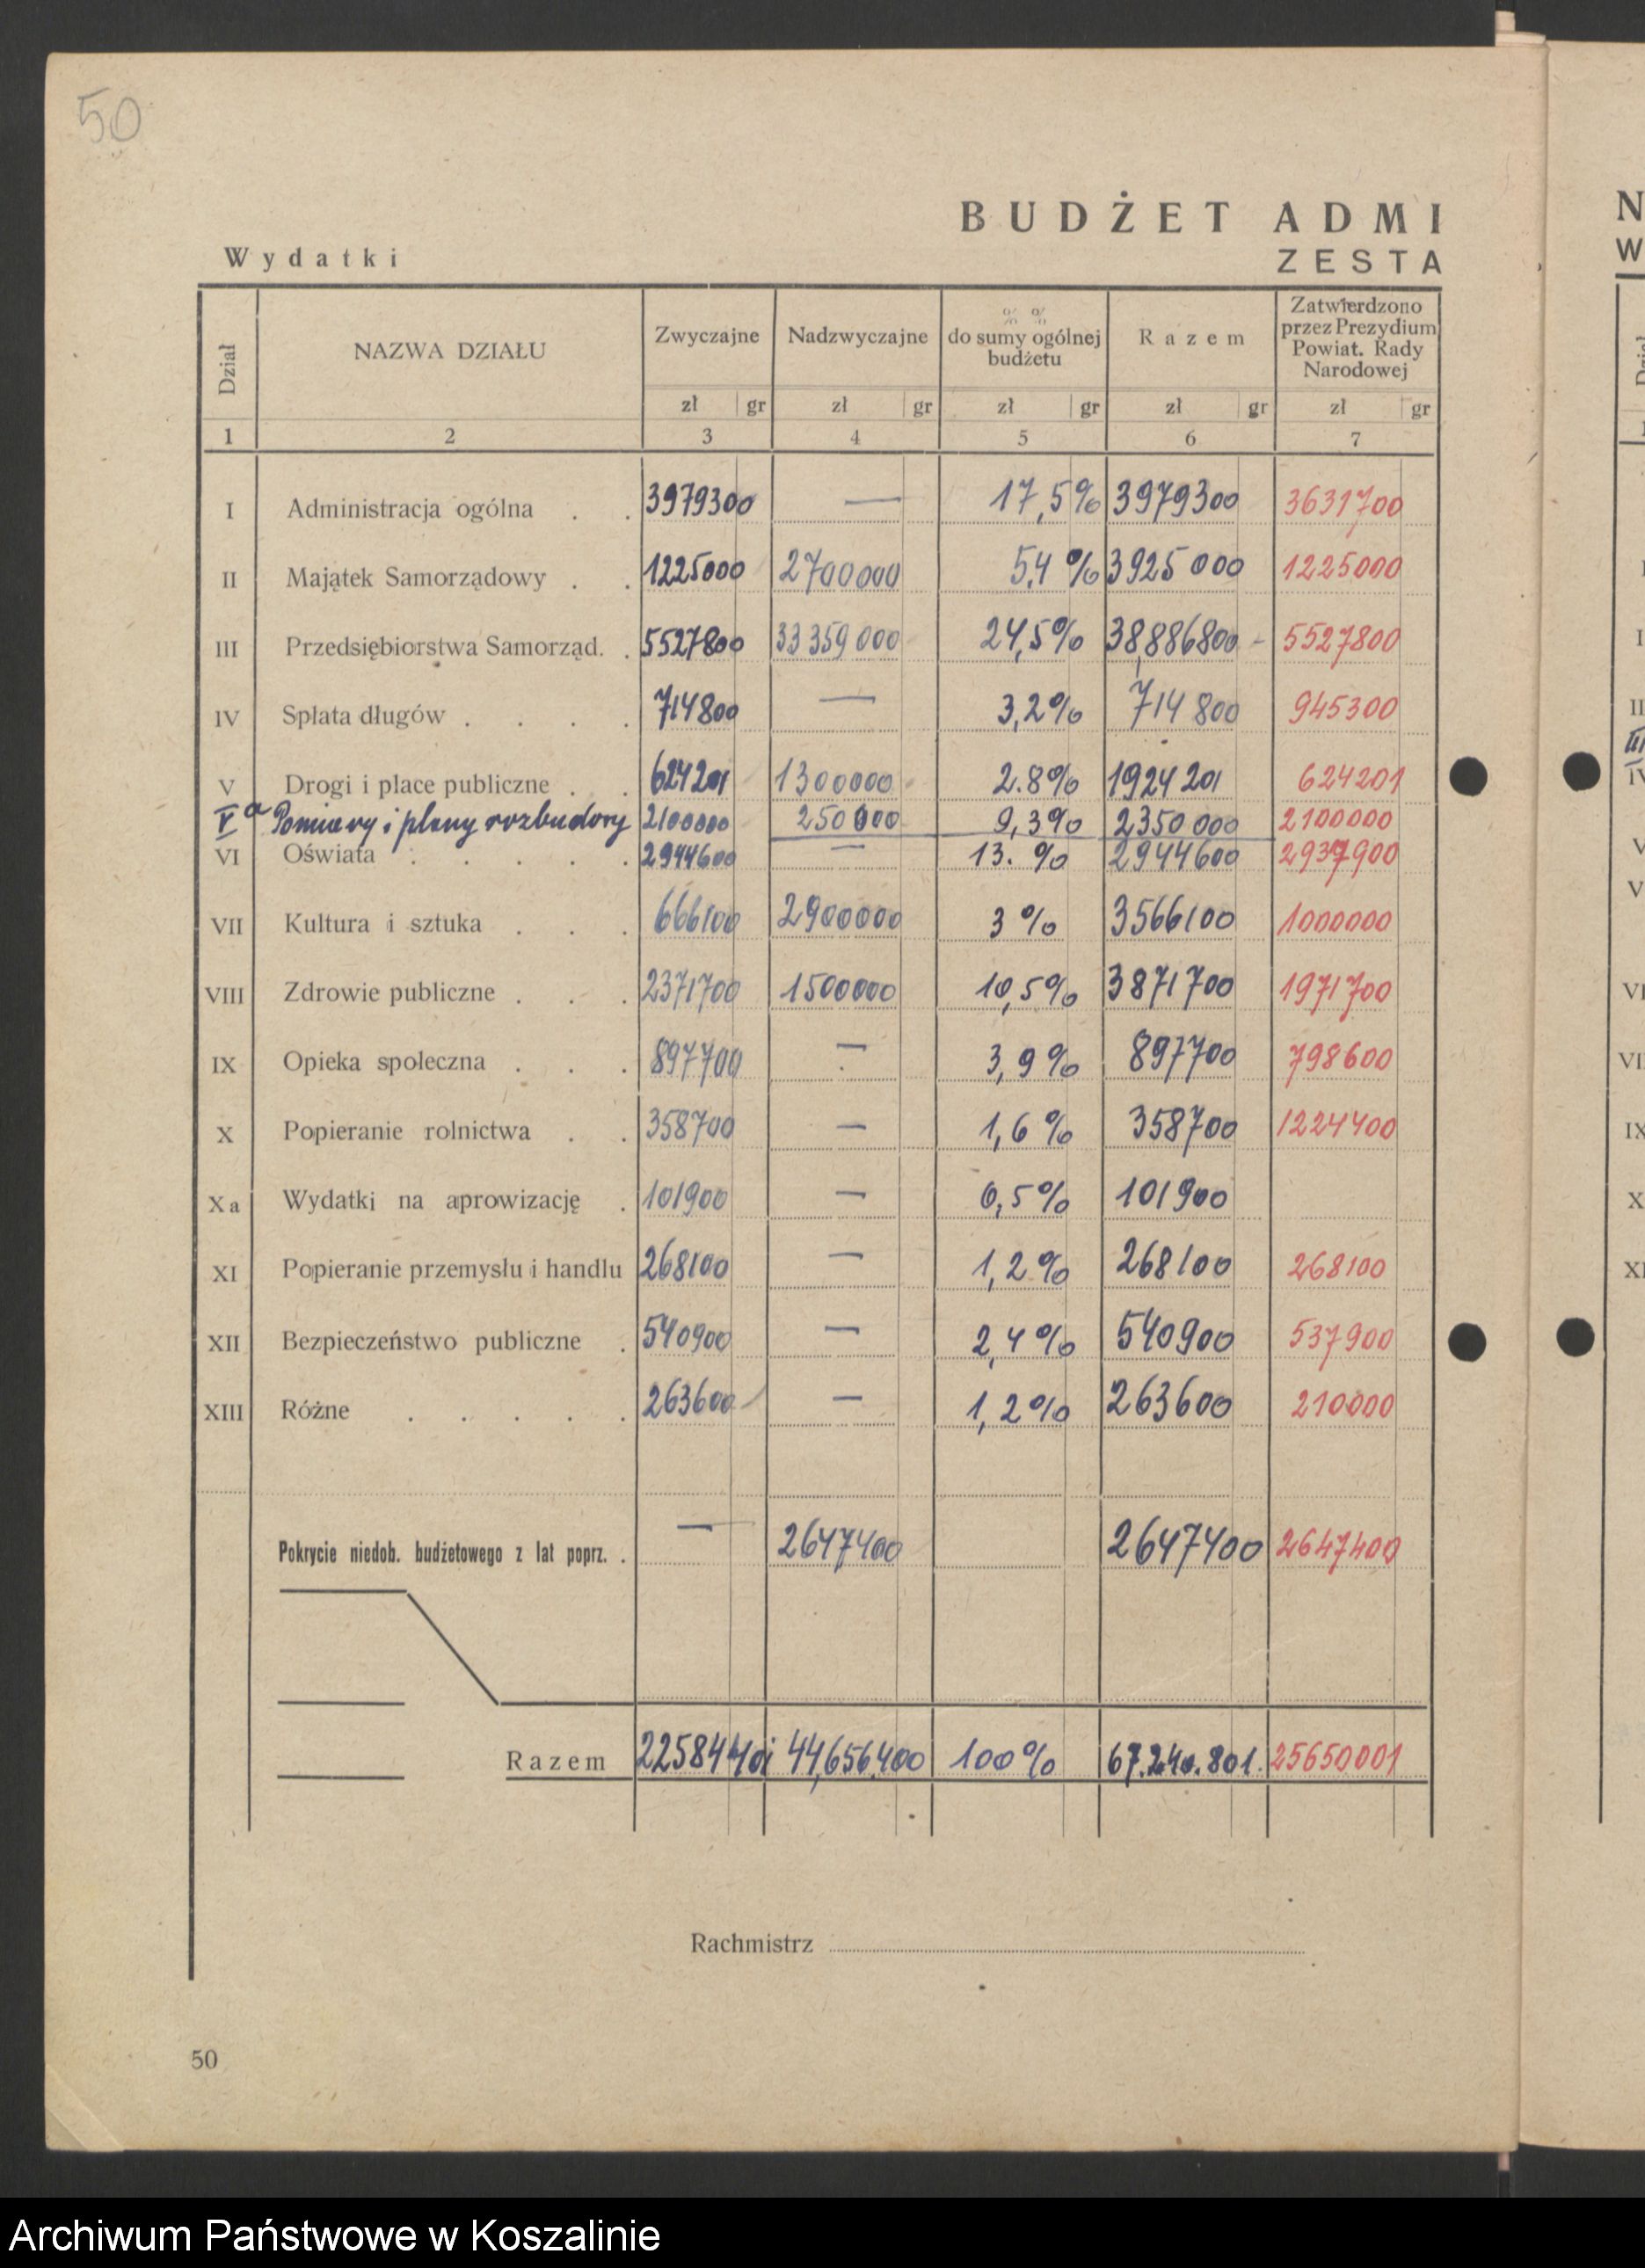 50
BUDŻET ADMI
Wydatki
ZESTA
Dział | NAZWA DZIAŁU | Zwyczajne | Nadzwyczajne | % % do sumy ogólnej budżetu | Razem | Zatwierdzono przez Prezydium Powiat. Rady Narodowej
zł gr | zł gr | zł gr | zł gr | zł gr
1 | 2 | 3 | 4 | 5 | 6 | 7
I | Administracja ogólna . . | 3979300 | — | 17,5% | 3979300 | 3631700
II | Majątek Samorządowy . . | 1225000 | 2700000 | 5,4 % | 3925000 | 1225000
III | Przedsiębiorstwa Samorząd. . | 5527800 | 33359000 | 24,5% | 38,886800 - | 5527800
IV | Spłata długów . . . . | 714800 | — | 3,2% | 714800 | 945300
V | Drogi i place publiczne . . | 624201 | 1300000 | 2.8% | 1924201 | 624201
Va | Pomiary i plany rozbudowy | 2100000 | 250000 | 9,3% | 2350000 | 2100000
VI | Oświata . . . . . | 2944600 | — | 13. % | 2944600 | 2937900
VII | Kultura i sztuka . . . | 666100 | 2900000 | 3 % | 3566100 | 1000000
VIII | Zdrowie publiczne . . . | 2371700 | 1500000 | 10,5% | 3871700 | 1971700
IX | Opieka społeczna . . . | 897700 | — | 3,9% | 897700 | 798600
X | Popieranie rolnictwa . . | 358700 | — | 1,6 % | 358700 | 1224400
Xa | Wydatki na aprowizację . | 101900 | — | 0,5% | 101900
XI | Popieranie przemysłu i handlu | 268100 | — | 1,2% | 268100 | 268100
XII | Bezpieczeństwo publiczne . | 540900 | — | 2,4% | 540900 | 537900
XIII | Różne . . . . . | 263600 | — | 1,2% | 263600 | 210000
Pokrycie niedob. budżetowego z lat poprz. . | — | 2647400 | | 2647400 | 2647400
Razem | 22584401 | 44,656,400 | 100% | 67.240.801. | 25650001
Rachmistrz
50
Archiwum Państwowe w Koszalinie